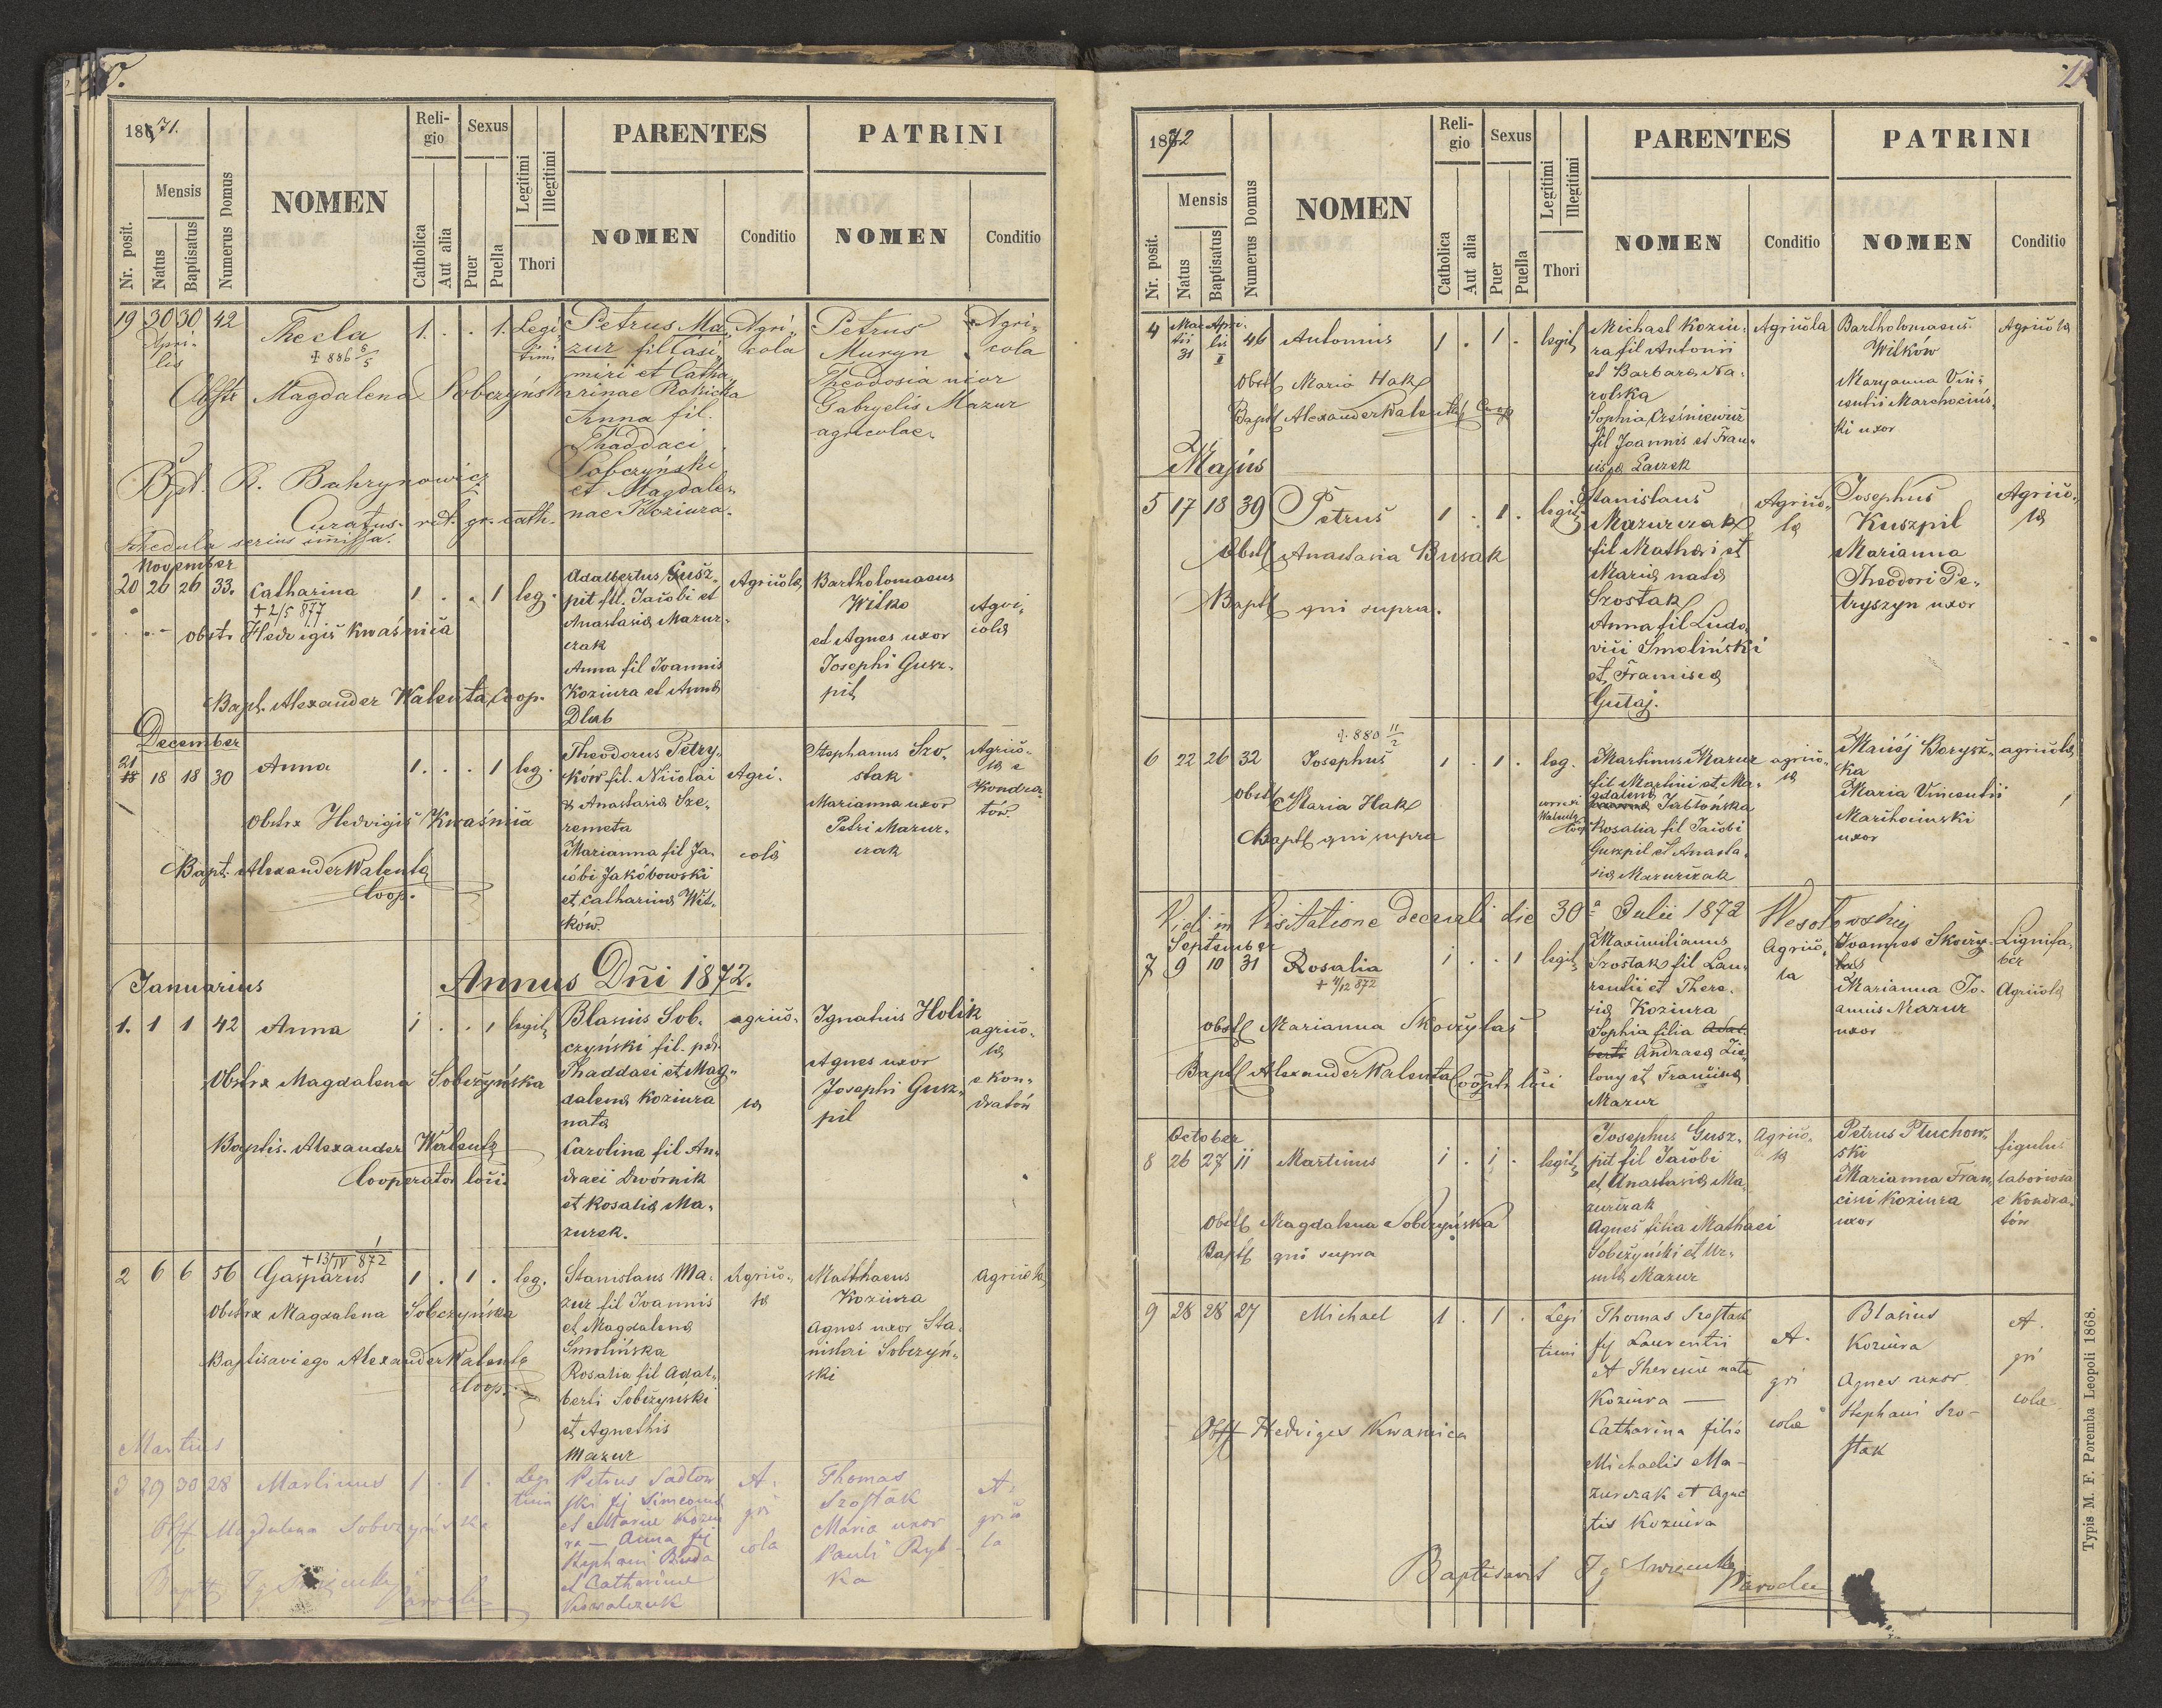 1871.
Nr. posit.
Mensis
Natus
Baptisatus
Numerus Domus
NOMEN
Reli-
gio
Catholica
Aut alia
Sexus
Puer
Puella
Legitimi
Illegitimi
Thori
PARENTES
NOMEN
Conditio
PATRINI
NOMEN
Conditio
19 30 30 42 Thecla 1. . . 1. Legi
timi
Apri-
lis
‡ 886 8/5
Petrus Ma-
zur fil Casi-
miri et Catha
rinae Rokicka
Anna fil.
Thaddaei
Sobczyński
et Magdale-
nae Koziura.
Agri-
cola
Petrus
Muryn
Theodosia uxor
Gabryelis Mazur
agricolae.
Agri-
cola
Obstr Magdalena Sobczyńska
Bpt. R. Bahrynowicz
Curatus. rit. gr. cath.
Schedula serius missa.
November
20 26 26 33. Catharina 1 . . 1 leg.
+ 2/5 877
obstr Hedvigis Kwaśnica
Bapt. Alexander Walenta Coop.
Adalbertus Gusz-
pit fil. Jacobi et
Anastasia Mazur-
czak
Anna fil Joannis
Koziura et Anna
Dlub
Agricola
Bartholomaeus
Wilko
et Agnes uxor
Josephi Gusz-
pit
Agri-
cola
December
21
18 18 18 30 Anna 1. . . 1 leg.
Obstrx Hedvigis Kwaśnica
Bapt. Alexander Walenta
Coop.
Theodorus Petry-
kow fil. Nicolai
& Anastasia Sze-
remeta
Marianna fil Ja-
cobi Jakóbowski
et Catharina Wit-
ków.
Agri-
cola
Stephanus Szo-
stak
Marianna uxor
Petri Mazur-
czak
Agrico-
la e
Kondra-
tów.
Januarius
Annus Dñi 1872.
1. 1 1 42 Anna 1 . . 1 legit
Obstrx Magdalena Sobczyńska
Baptis. Alexander Walenta
Cooperator loci.
Blasius Sob-
czyński fil.
Thaddaei et Mag-
dalena Koziura
nata
Carolina fil An-
draei Dwórnik
et Rosalia Ma-
zurek.
agrico-
la
Ignatius Holik
Agnes uxor
Josephi Gusz-
pil
agrico-
la
e Kon-
dratów
2 6 6 56 Gasparus 1 . 1 . leg.
+ 13/IV 872
Obstrx Magdalena Sobczyńska
Baptisavi ego Alexander Walenta
Coop.
Stanislaus Ma-
zur fil Joannis
et Magdalena
Smolińska
Rosalia fil Adal-
berti Sobczyński
et Agnethis
Mazur
Agrico-
la
Matthaeus
Koziura
Agnes uxor Sta-
nislai Sobczyn-
ski
agricola
Martius
3 29 30 28 Martinus 1 . 1 . Legi
timi
Obst Magdalena Sobczyńska
Petrus Sadłow
ski
et Mariae Koziu
ra — Anna
Stephani Buda
et Catharinae
Kowalczuk
A-
gri
cola
Thomas
Szostak
Maria uxor
Pauli Ryb-
ka
A-
grico
la
1872
Nr. posit.
Mensis
Natus
Baptisatus
Numerus Domus
NOMEN
Reli-
gio
Catholica
Aut alia
Sexus
Puer
Puella
Legitimi
Illegitimi
Thori
PARENTES
NOMEN
Conditio
PATRINI
NOMEN
Conditio
4 Mar-
tii
31 Apri-
lis
1 46 Antonius 1 . 1 . legit
Obst Maria Hak
Bapt Alexander Walenta Coop
Michael Koziu-
ra fil Antonii
et Barbara Na-
rolska
Sophia Cześniewicz
fil Joannis et Fran-
cisca Laczek
Agricola
Bartholomaeus
Wilków
Maryanna Vin-
centii Marchociń-
ski uxor
Agricola
Majus
5 17 18 39 Petrus 1 . 1 . legit
Obst Anastasia Busak
Bapt qui supra.
Stanislaus
Mazurczak
fil Mathaei et
Maria nata
Szostak
Anna fil Ludo-
vici Smoliński
et Francisca
Gutaj.
Agrico-
la
Josephus
Kuszpil
Marianna
Theodori Pe-
tryszyn uxor
Agrico-
la
6 22 26 32 Josephus 1 . 1 . leg.
880 11/2
obst Maria Hak
Bapt qui supra
Walenta
Coop
Martinus Mazur
fil Martini et Ma-
gdalena
Jabłońska
Rosalia fil Jacobi
Guszpil et Anasta-
sia Mazurczak
agrico-
la
Maciej Borysz-
ka
Maria Vincentii
Marchocinski
uxor
agricola
Vidi in Visitatione decanali die 30ª Julii 1872 Wesołowski
September
7 9 10 31 Rosalia 1 . . 1 legit
+ 4/12 872
obst Marianna Skoczylas
Bapt Alexander Walenta Cooptr loci
Maximilianus
Szostak fil Lau-
rentii et There-
sia Koziura
Sophia filia Adal-
berti Andraea Zie-
lony et Francisca
Mazur
Agrico-
la
Joannes Skoczy-
las
Marianna Jo-
annis Mazur
uxor
Lignifa-
ber
Agricola
October
8 26 27 11 Martinus 1 . 1 . legit
Obst Magdalena Sobczyńska
Bapt qui supra
Josephus Gusz-
pit fil Jacobi
et Anastasia Ma-
zurczak
Agnes filia Mathaei
Sobczyński et Ur-
sula Mazur
Agrico-
la
Petrus Pluchow-
ski
Marianna Fran-
cisci Koziura
uxor
figulus
laboriosa
e Kondra-
tów
9 28 28 27 Michael 1 . 1 . Legi
timi
Obst Hedviges Kwasnica
Thomas Szostak
Laurentii
et Theresiae nata
Koziura —
Catharina filia
Michaelis Ma-
zurczak et Agne
tis Koziura
A-
gri
colae
Blasius
Koziura
Agnes uxor
Stephani Szo-
stak
A-
gri
colae
Baptisavit
Typis M. F. Poremba Leopoli 1868.